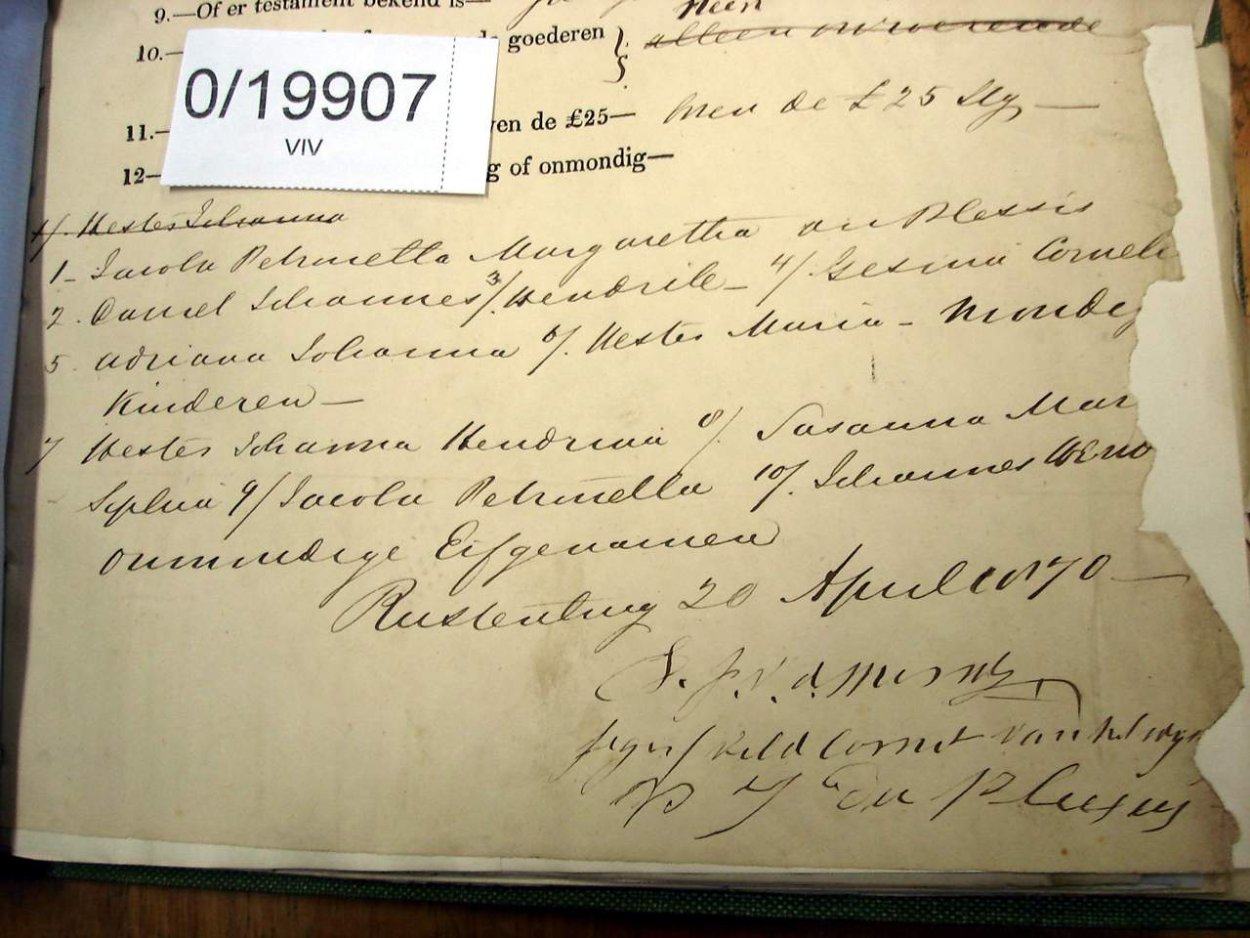 9.—Of er testament bekend is—
Neen
10.— goederen alleen onroerende
0/19907
VIV
11.— ven de £25— boven de £25 Stg —
12— g of onmondig—
1/. Hester Johanna
1- Jacoba Petronella Margaretha du Plessis
2. Daniel Johannes 3/. Hendrik - 4/. Gesina Corneli
5. Adriana Johanna 6/. Hester Maria - mondig
Kinderen —
7 Hester Johanna Hendrina 8/. Susanna Mar
Sophia 9/ Jacoba Petronella 10/. Johannes
onmondige Erfgenamen
Rustenburg 20 April 1870 —
veld Cornet van het wyk
du Plessis